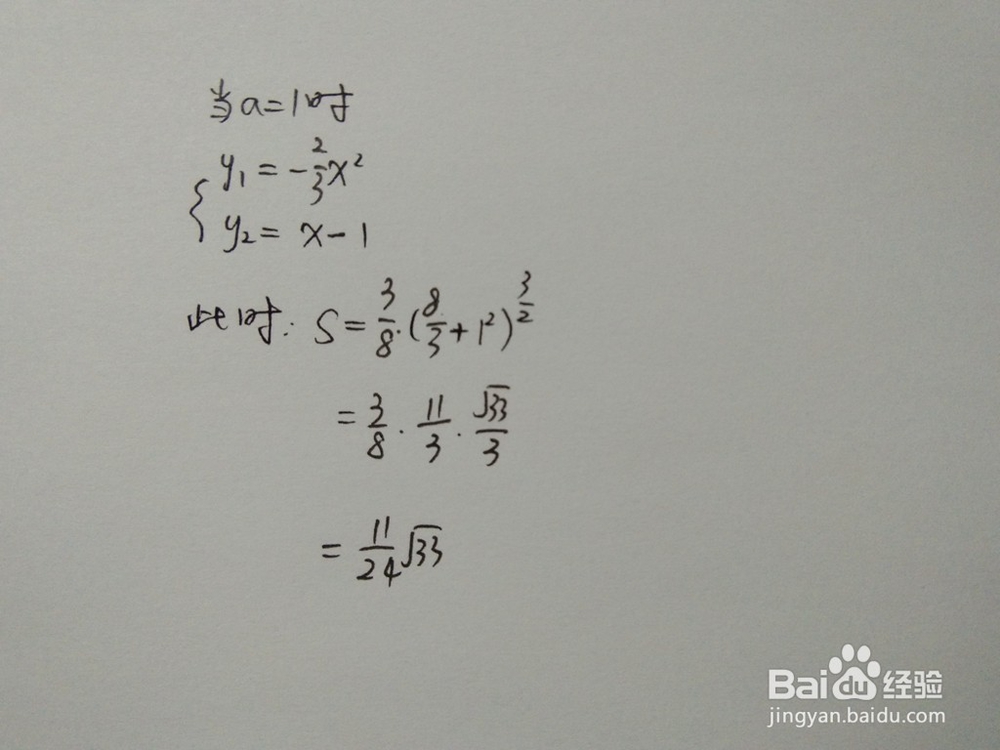 当a=1时
y₁=-2/3x²
y₂=x-1
此时: S=3/8·(8/3+1²)^(3/2)
=3/8·11/3·√33/3
=11/24√33
Baidu经验
jingyan.baidu.com